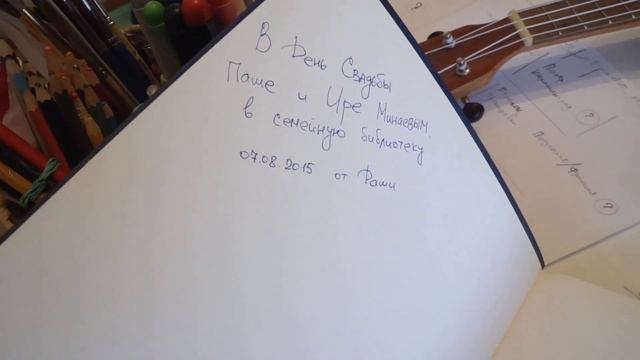 В День Свадьбы
Паше и Ире Минаевым.
в семейную библиотеку
07.08.2015 от Фаши